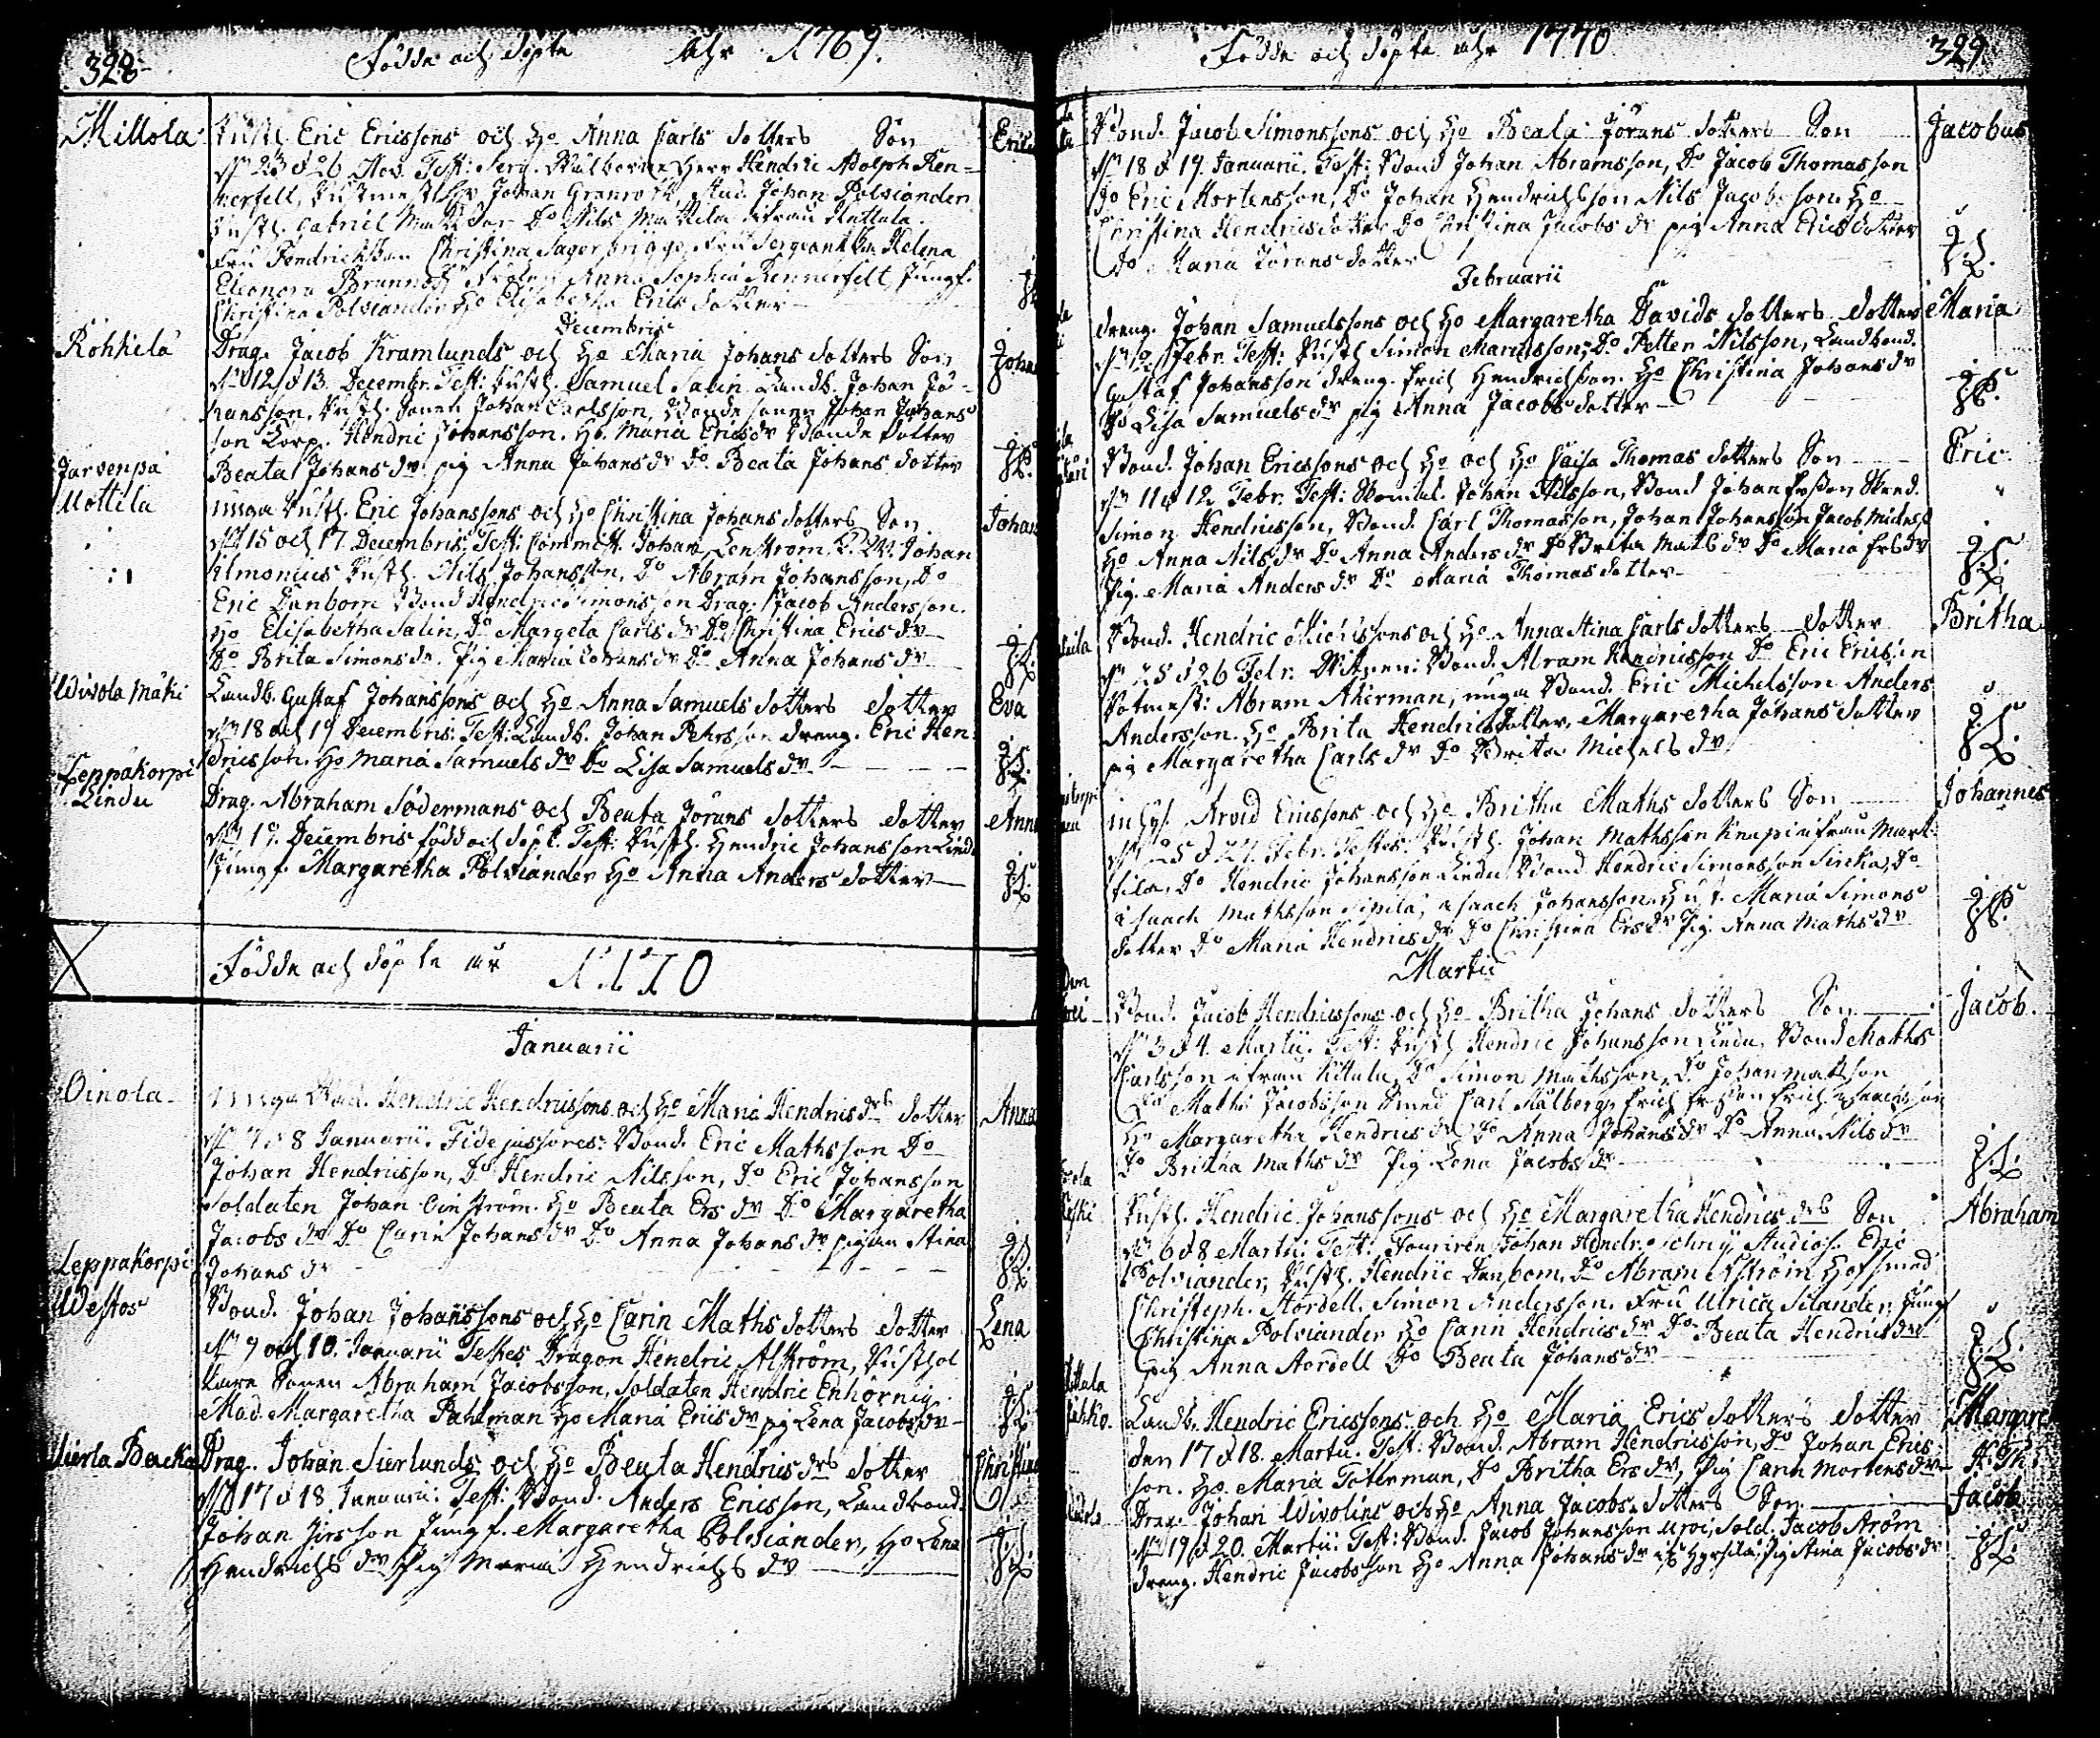 328
Födde och döpte Åhr 1769.
Millola Rusth. Eric Ericssons och Ho Anna Carls dotters Son Eric
23 d 26 Nov. Test: Serg. Wälborne Herr Hendric Adolph Ren=
nerfelt, Johan Granroth, Stud. Johan Polviander
Rusth. Gabriel Mattila Do Nils Mattila ifrån Kattala.
Fru Fendrickskan Christina Lagerbrigge, Fru Sergeantskan Helena
Eleonora Brunnow Frölen Anna Sophia Rennerfelt Jungf.
Christina Polviander Ho Elisabetha Erics dotter
Decembris
Röhkelä Drag. Jacob Kramlunds och Ho Maria Johans dotters Son Johan
12 d 13 Decembr. Test: Rusth. Samuel Salin Landb. Johan Jo-
hansson, Rusth. Sonen Johan Carlsson, Bonde sonen Johan Johans
son Corp. Hendric Johansson. Ho. Maria Ericsdr Bonde dotter
Beata Johans dr. pig Anna Johans dr Do. Beata Johans dotter
Jarvenpä
Uottila unga Rusth. Eric Johanssons och Ho Christina Johans dotters Son Johan
15 och 17 Decembris. Test: Commist. Johan Lenström. Johan
Almonius Rusth. Nils Johansson, Do Abram Johansson, Do
Eric Danbom Bond Hendric Simonsson Drag. Jacob Andersson.
Ho Elisabetha Salin, Do Margeta Carls dr Do Christina Erics dr
Do Brita Simonsdr. Pig Maria Johans dr Do Anna Johans dr
Uivola Mäki Landb. Gustaf Johanssons och Ho Anna Samuels dotters dotter Eva
18 och 19 Decembris. Test: Landb. Johan Pehrsson dreng. Eric Hen-
dricsson. Ho Maria Samuels dr Do Lisa Samuels dr
Leppäkorpi
Lindu Drag. Abraham Södermans och Beata Jörans dotters dotter Anna
19. Decembris född och döpt. Test: Rusth. Hendric Johansson Lindu
Jungf. Margaretha Polviander Ho Anna Anders dotter
Födde och döpte år 1770
Januarii
Oinola unga Bond. Hendric Hendricssons och Ho Maria Hendrics drs dotter Anna
7 d 8 Januarii. Fidejussores: Bond. Eric Mathsson Do
Johan Hendricsson, Do Hendric Nilsson, Do Eric Johansson
Soldaten Johan Oinström. Ho Beata Ers dr Do Margaretha
Jacobs dr Do Carin Johans dr Do Anna Johans dr pigan Stina
Johans dr
Leppäkorpi
Westos Bond. Johan Johanssons och Ho Carin Maths dotters dotter Lena
9 och 10. Januarii Testes Dragon Hendric Alström, Rusthol
lare Sonen Abraham Jacobsson, Soldaten Hendric Enhörnig
Mad. Margaretha Pahlman Ho Maria Erics dr pig Lena Jacobs dr
Sierla Backa Drag. Johan Sierlunds och Ho Beata Hendrics drs dotter Christina
17 d 18 Januarii: Test: Bond. Anders Ericsson, Landbond.
Johan Jirsson Jungf. Margaretha Polviander, Ho Lena
Hendrichs dr Pig Maria Hendrichs dr
Födde och döpte åhr 1770
329
Bond. Jacob Simonssons och Ho Beata Jörans dotters Son Jacobus
18 d 19. Januarii. Test: Bond Johan Abramsson, Do Jacob Thomasson
Do Eric Mortensson, Do Johan Hendrichsson Nils Jacobsson Ho
Christina Hendricsdotter Do Christina Jacobs dr pig Anna Erics dotter
Do Maria Jörans dotter
Februarii
dreng. Johan Samuelssons och Ho Margaretha Davids dotters dotter Maria
Febr. Test: Rusth Simon Marcusson, Do Petter Nilsson, Landbond.
Gustaf Johansson dreng. Erich Hendrichsson. Ho Christina Johans dr
Do Lisa Samuels dr pig Anna Jacobs dotter
Bond. Johan Ericssons och Ho och Ho Caisa Thomas dotters Son Eric
11 d 12. Febr. Test: Johan Nilsson, Bond Johan Ersson
Simon Hendricsson, Bond. Carl Thomasson, Johan Johansson Jacob
Ho Anna Nils dr Do Anna Anders dr Do Brita Mats dr Do Maria Ers dr
Pig. Maria Anders dr Do Maria Thomas dotter
Bond. Hendric Michelssons och Ho Anna Stina Carls dotters dotter Britha
25 d 26 Febr. Witnen: Bond. Abram Hendricsson Do Eric Ericsson
Abram Åkerman, unga Bond. Eric Michelsson Anders
Andersson. Ho Brita Hendrics dotter, Margaretha Johans dotter
pig Margaretha Carls dr Do Brita Michels dr
inhys. Arvid Ericssons och Ho Britha Maths dotters Son Johannes
25 d 27. Febr. Testes: Rusth. Johan Mathsson Knapi ifrån Mart-
tila, Do Hendric Johansson Lindu Bond Hendric Simonsson Sireka, Do
Isaach Mathsson Sipilä, Isaach Johansson Maria Simons
dotter Do Maria Hendrics dr Do Christina Ers dr Pig. Anna Maths dr
Martii
Bond. Jacob Hendricssons och Ho Britha Johans dotters Son Jacob.
3 d 4. Martii. Test: Rusth Hendric Johansson Lindu, Bond Maths
Carlsson ifrån Kitula, Do Simon Mathsson, Do Johan Matsson
Do Maths Jacobsson Smed Carl Målberg, Erich Ersson Erich Isaachsson
Ho Margaretha Hendrics dr Do Anna Johans dr Do Anna Nils dr
Do Britha Maths dr Pig Lena Jacobs dr
Rusth. Hendric Johanssons och Ho Margaretha Hendrics drs Son Abraham
6 d 8 Martii. Test: Johan Hendr. Studios. Eric
Polviander, Rusth. Hendric Danbom, Do Abram Aström Hofsmed
Christeph. Nordell, Simon Andersson. Fru Ulrica Silander, Jungf
Christina Polviander Ho Carin Hendrics dr Do Beata Hendrics dr
pig Anna Nordell Do Beata Johans dr
Landb. Hendric Ericssons och Ho Maria Erics dotters dotter Margare
den 17 d 18. Martii. Test: Bond. Abram Hendricsson, Do Johan Erics-
son. Ho. Maria Toterman, Do Britha Ers dr, Pig Carin Mortens dr
Drag. Johan Uivolins och Ho Anna Jacobs dotters Son Jacob
19 d 20. Martii: Test: Bond. Jacob Johansson Uroi, Sold. Jacob Ström
dreng. Hendric Jacobsson Ho Anna Johans dr Hyrsilä, Pig Stina Jacobs dr